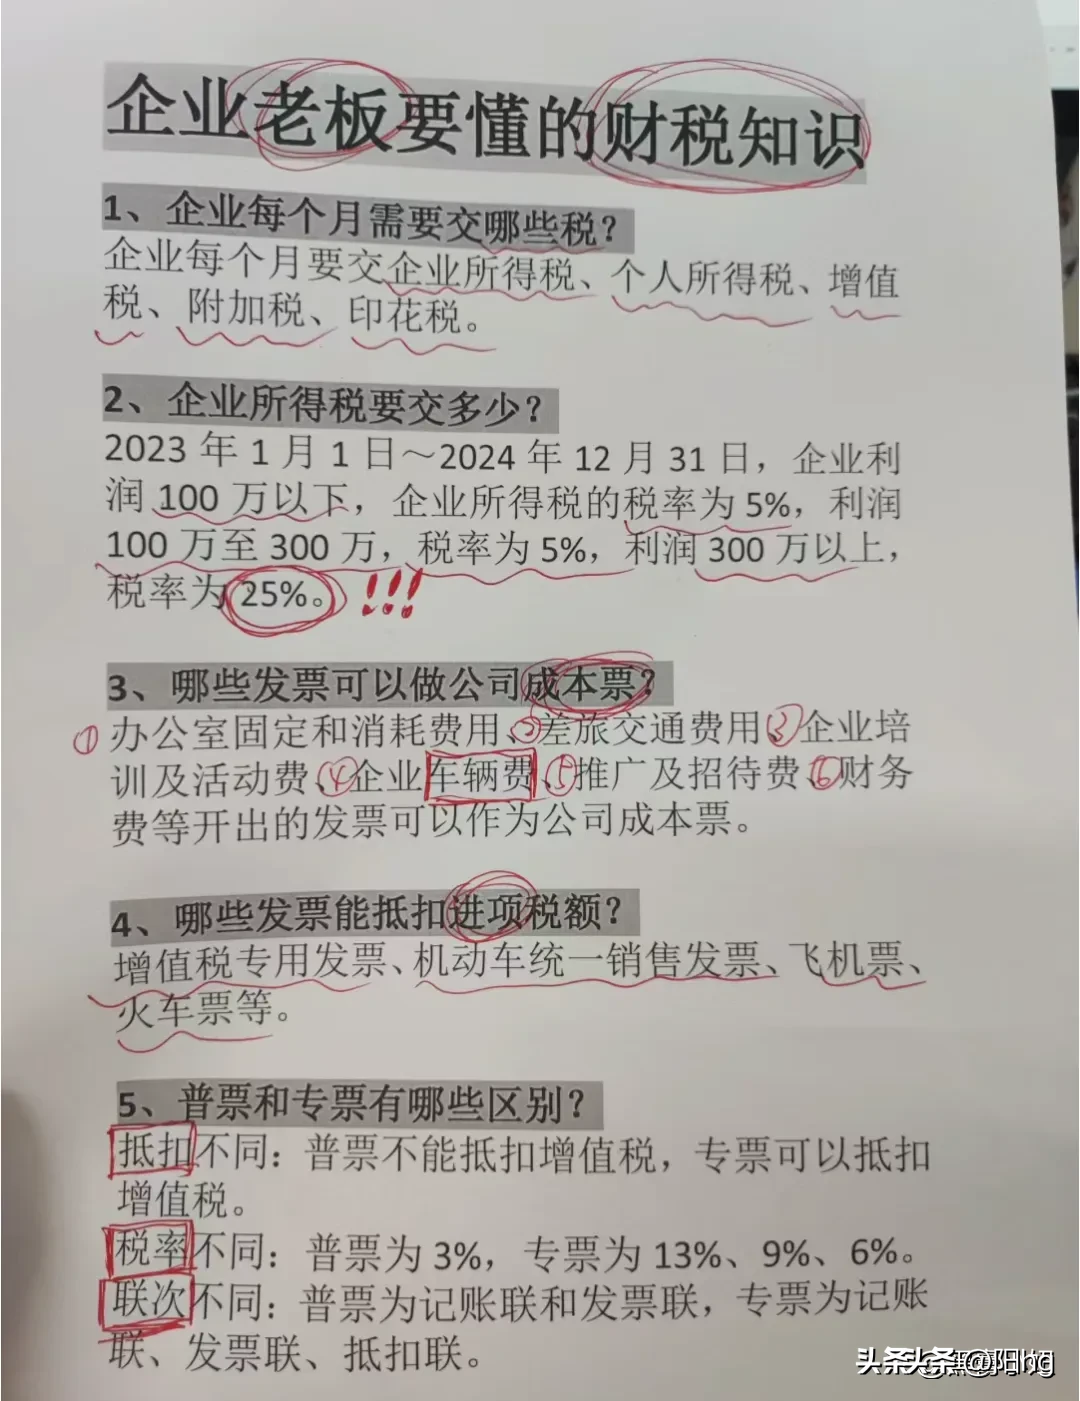 企业老板要懂的财税知识
1、企业每个月需要交哪些税？
企业每个月要交企业所得税、个人所得税、增值
税、附加税、印花税。
2、企业所得税要交多少？
2023 年 1 月 1 日～2024 年 12 月 31 日，企业利
润 100 万以下，企业所得税的税率为 5%，利润
100 万至 300 万，税率为 5%，利润 300 万以上，
税率为 25%。!!!
3、哪些发票可以做公司成本票？
①办公室固定和消耗费用、②差旅交通费用、③企业培
训及活动费、④企业车辆费、⑤推广及招待费、⑥财务
费等开出的发票可以作为公司成本票。
4、哪些发票能抵扣进项税额？
增值税专用发票、机动车统一销售发票、飞机票、
火车票等。
5、普票和专票有哪些区别？
抵扣不同：普票不能抵扣增值税，专票可以抵扣
增值税。
税率不同：普票为 3%，专票为 13%、9%、6%。
联次不同：普票为记账联和发票联，专票为记账
联、发票联、抵扣联。
头条